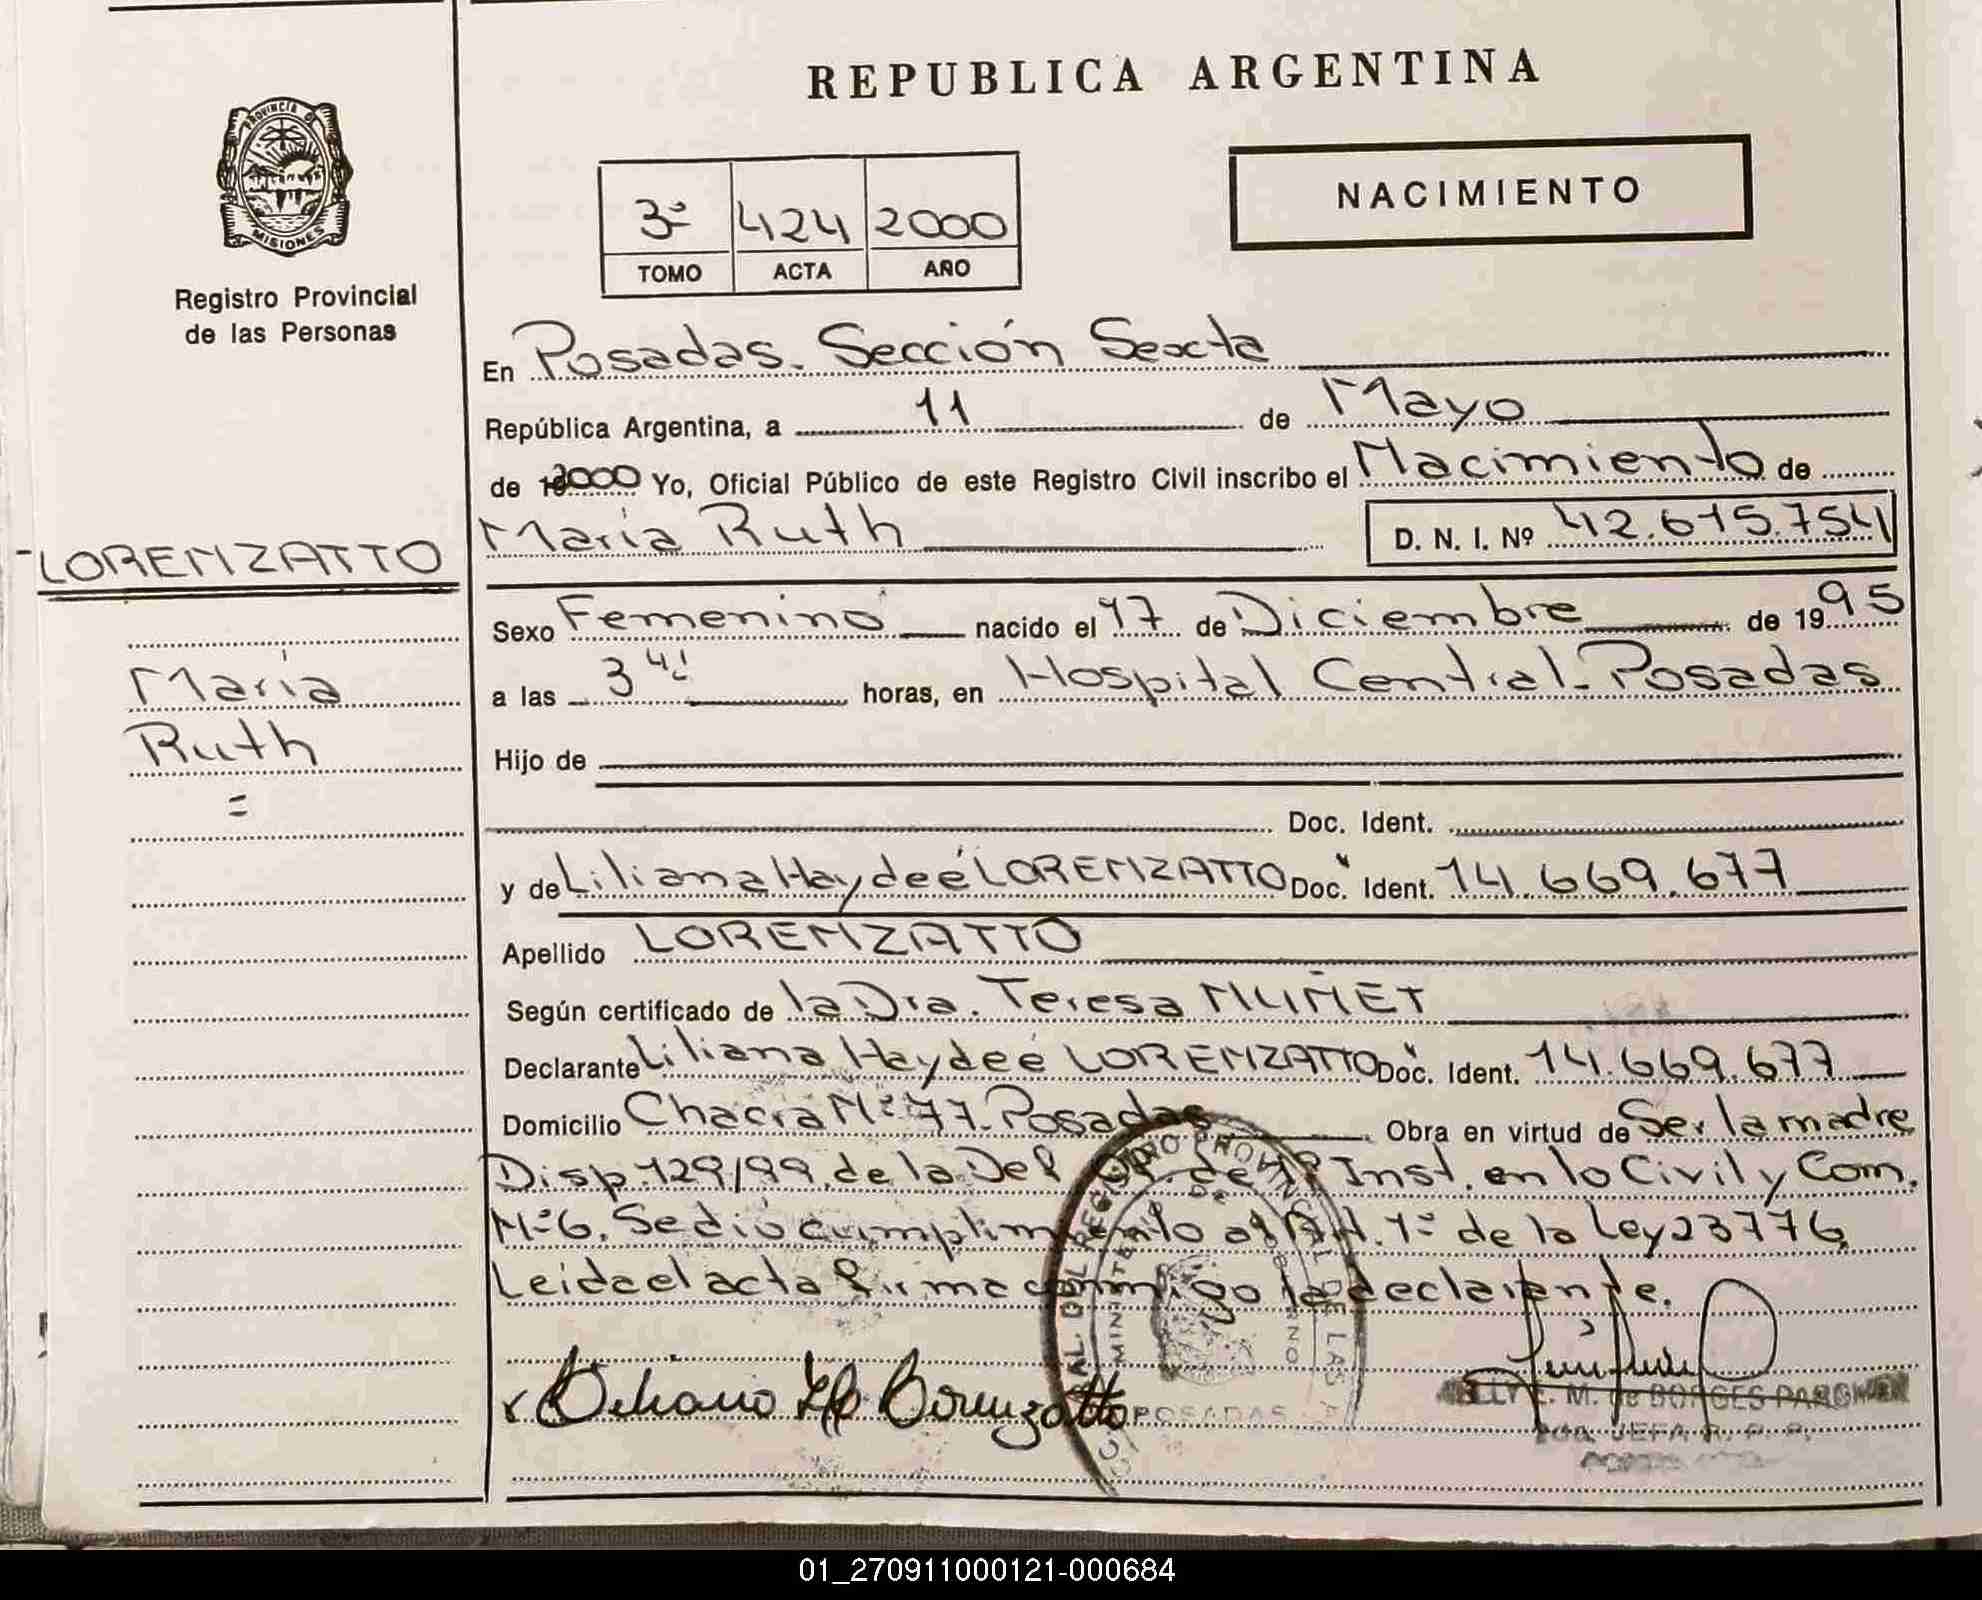 REPUBLICA ARGENTINA
PROVINCIA DE
MISIONES
Registro Provincial
de las Personas
NACIMIENTO
3º 424 2000
TOMO ACTA AÑO
En Posadas. Sección Sexta
República Argentina, a 11 de Mayo
de 2000 Yo, Oficial Público de este Registro Civil inscribo el Nacimiento de
LORENZATTO
María Ruth D. N. I. Nº 42.615.754
Sexo Femenino nacido el 17 de Diciembre de 1995
María
Ruth
a las 3 horas, en Hospital Central - Posadas
Hijo de
Doc. Ident.
y de Liliana Haydeé LORENZATTO Doc. Ident. 14.669.677
Apellido LORENZATTO
Según certificado de la Dra. Teresa
Declarante Liliana Haydeé LORENZATTO Doc. Ident. 14.669.677
Domicilio Chacra Nº 77 - Posadas Obra en virtud de Ser la madre
Disp. 129/99 de la Def. Of. de 1º Inst. en lo Civil y Com.
Nº 6. Se dió cumplimiento al Art. 1º de la Ley 23776
Leida el acta firma conmigo la declarante.
REGISTRO PROVINCIAL DE LAS
POSADAS
M. de BORGES
JEFA R. P. P.
01_270911000121-000684